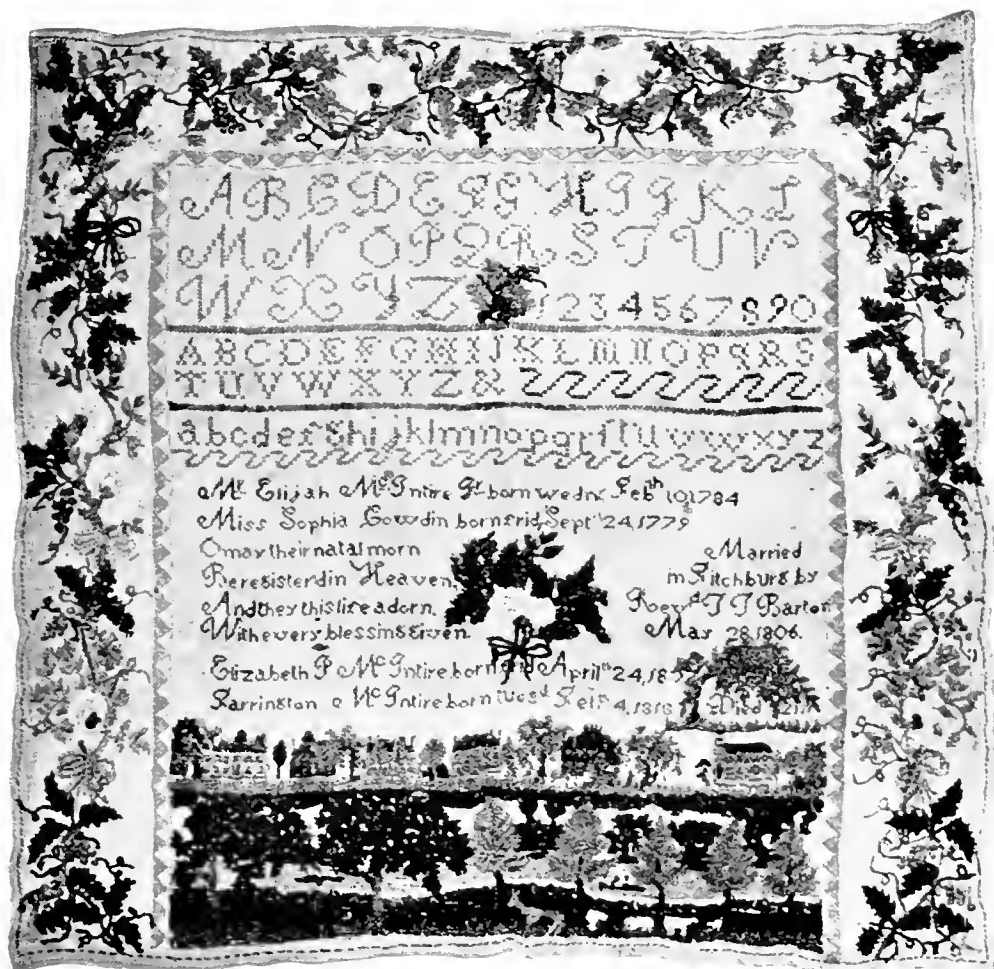 A B C D E F G H I J K L
M N O P Q R S T U V
W X Y Z 1 2 3 4 5 6 7 8 9 0
A B C D E F G H I J K L M N O P Q R S
T U V W X Y Z &
a b c d e f g h i j k l m n o p q r ſ t u v w x y z
Mr Elijah McIntire Jr born wedne Feb th 10 1784
Miss Sophia Gowdin born frid Sept th 24, 1779
O may their natal morn
Be registerd in Heaven,
And they this life adorn,
With every blessing given.
Married
in Fitchburg by
Revd T T Barton
May 28, 1806.
Elizabeth P McIntire born April th 24, 18
Farrington McIntire born tuesd Feb 4, 1818 Died